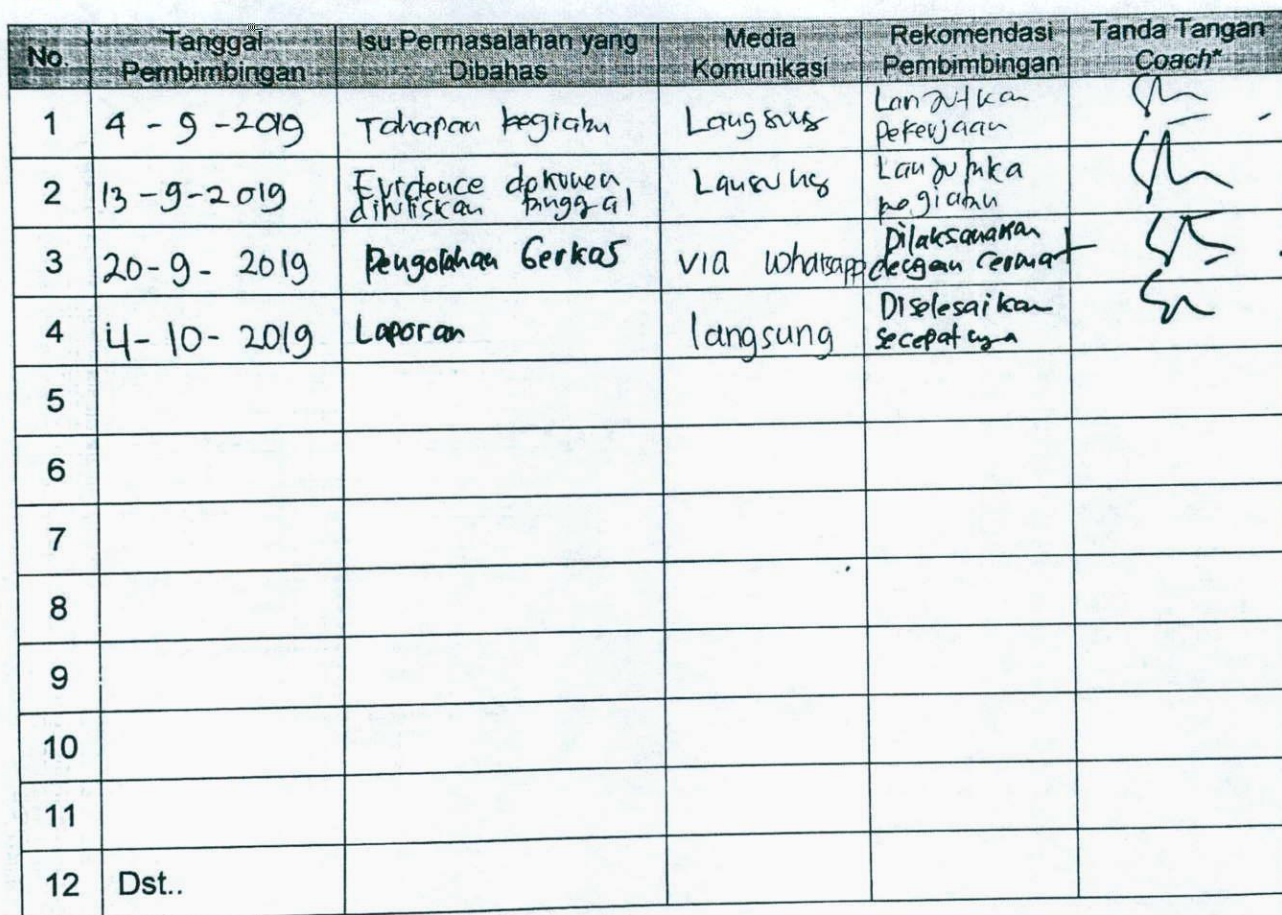 No. Tanggal Pembimbingan Isu Permasalahan yang Dibahas Media Komunikasi Rekomendasi Pembimbingan Tanda Tangan Coach*
1 4 - 9 - 2019 Tahapan kegiatan Langsung Lanjutkan pekerjaan
2 13 - 9 - 2019 Evidence dokumen, dituliskan tanggal Langsung Lanjutkan kegiatan
3 20 - 9 - 2019 Pengolahan berkas via whatsapp Dilaksanakan dengan cermat
4 4 - 10 - 2019 Laporan langsung Diselesaikan secepatnya
5
6
7
8
9
10
11
12 Dst..